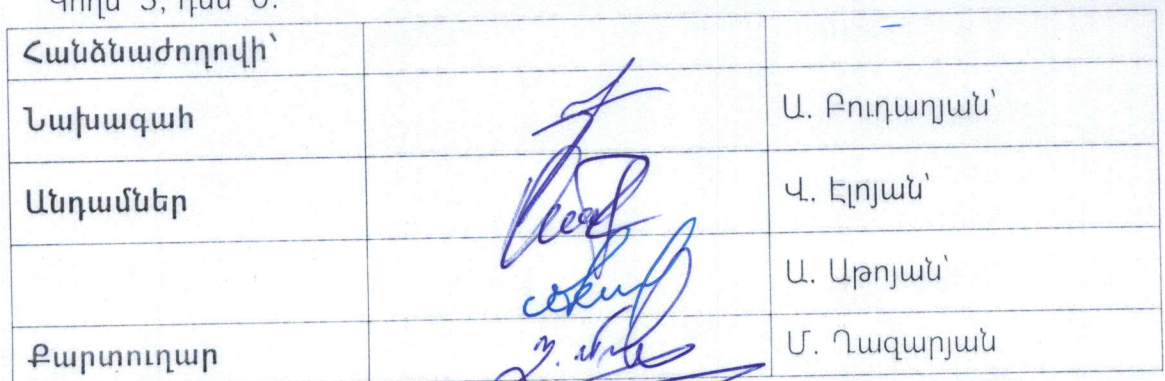 Կողմ՝ 5, դեմ՝ 0:
Հանձնաժողովի՝
Նախագահ Ա. Բուդաղյան՝
Անդամներ Վ. Էլոյան՝
Ա. Աթոյան՝
Քարտուղար Մ. Ղազարյան